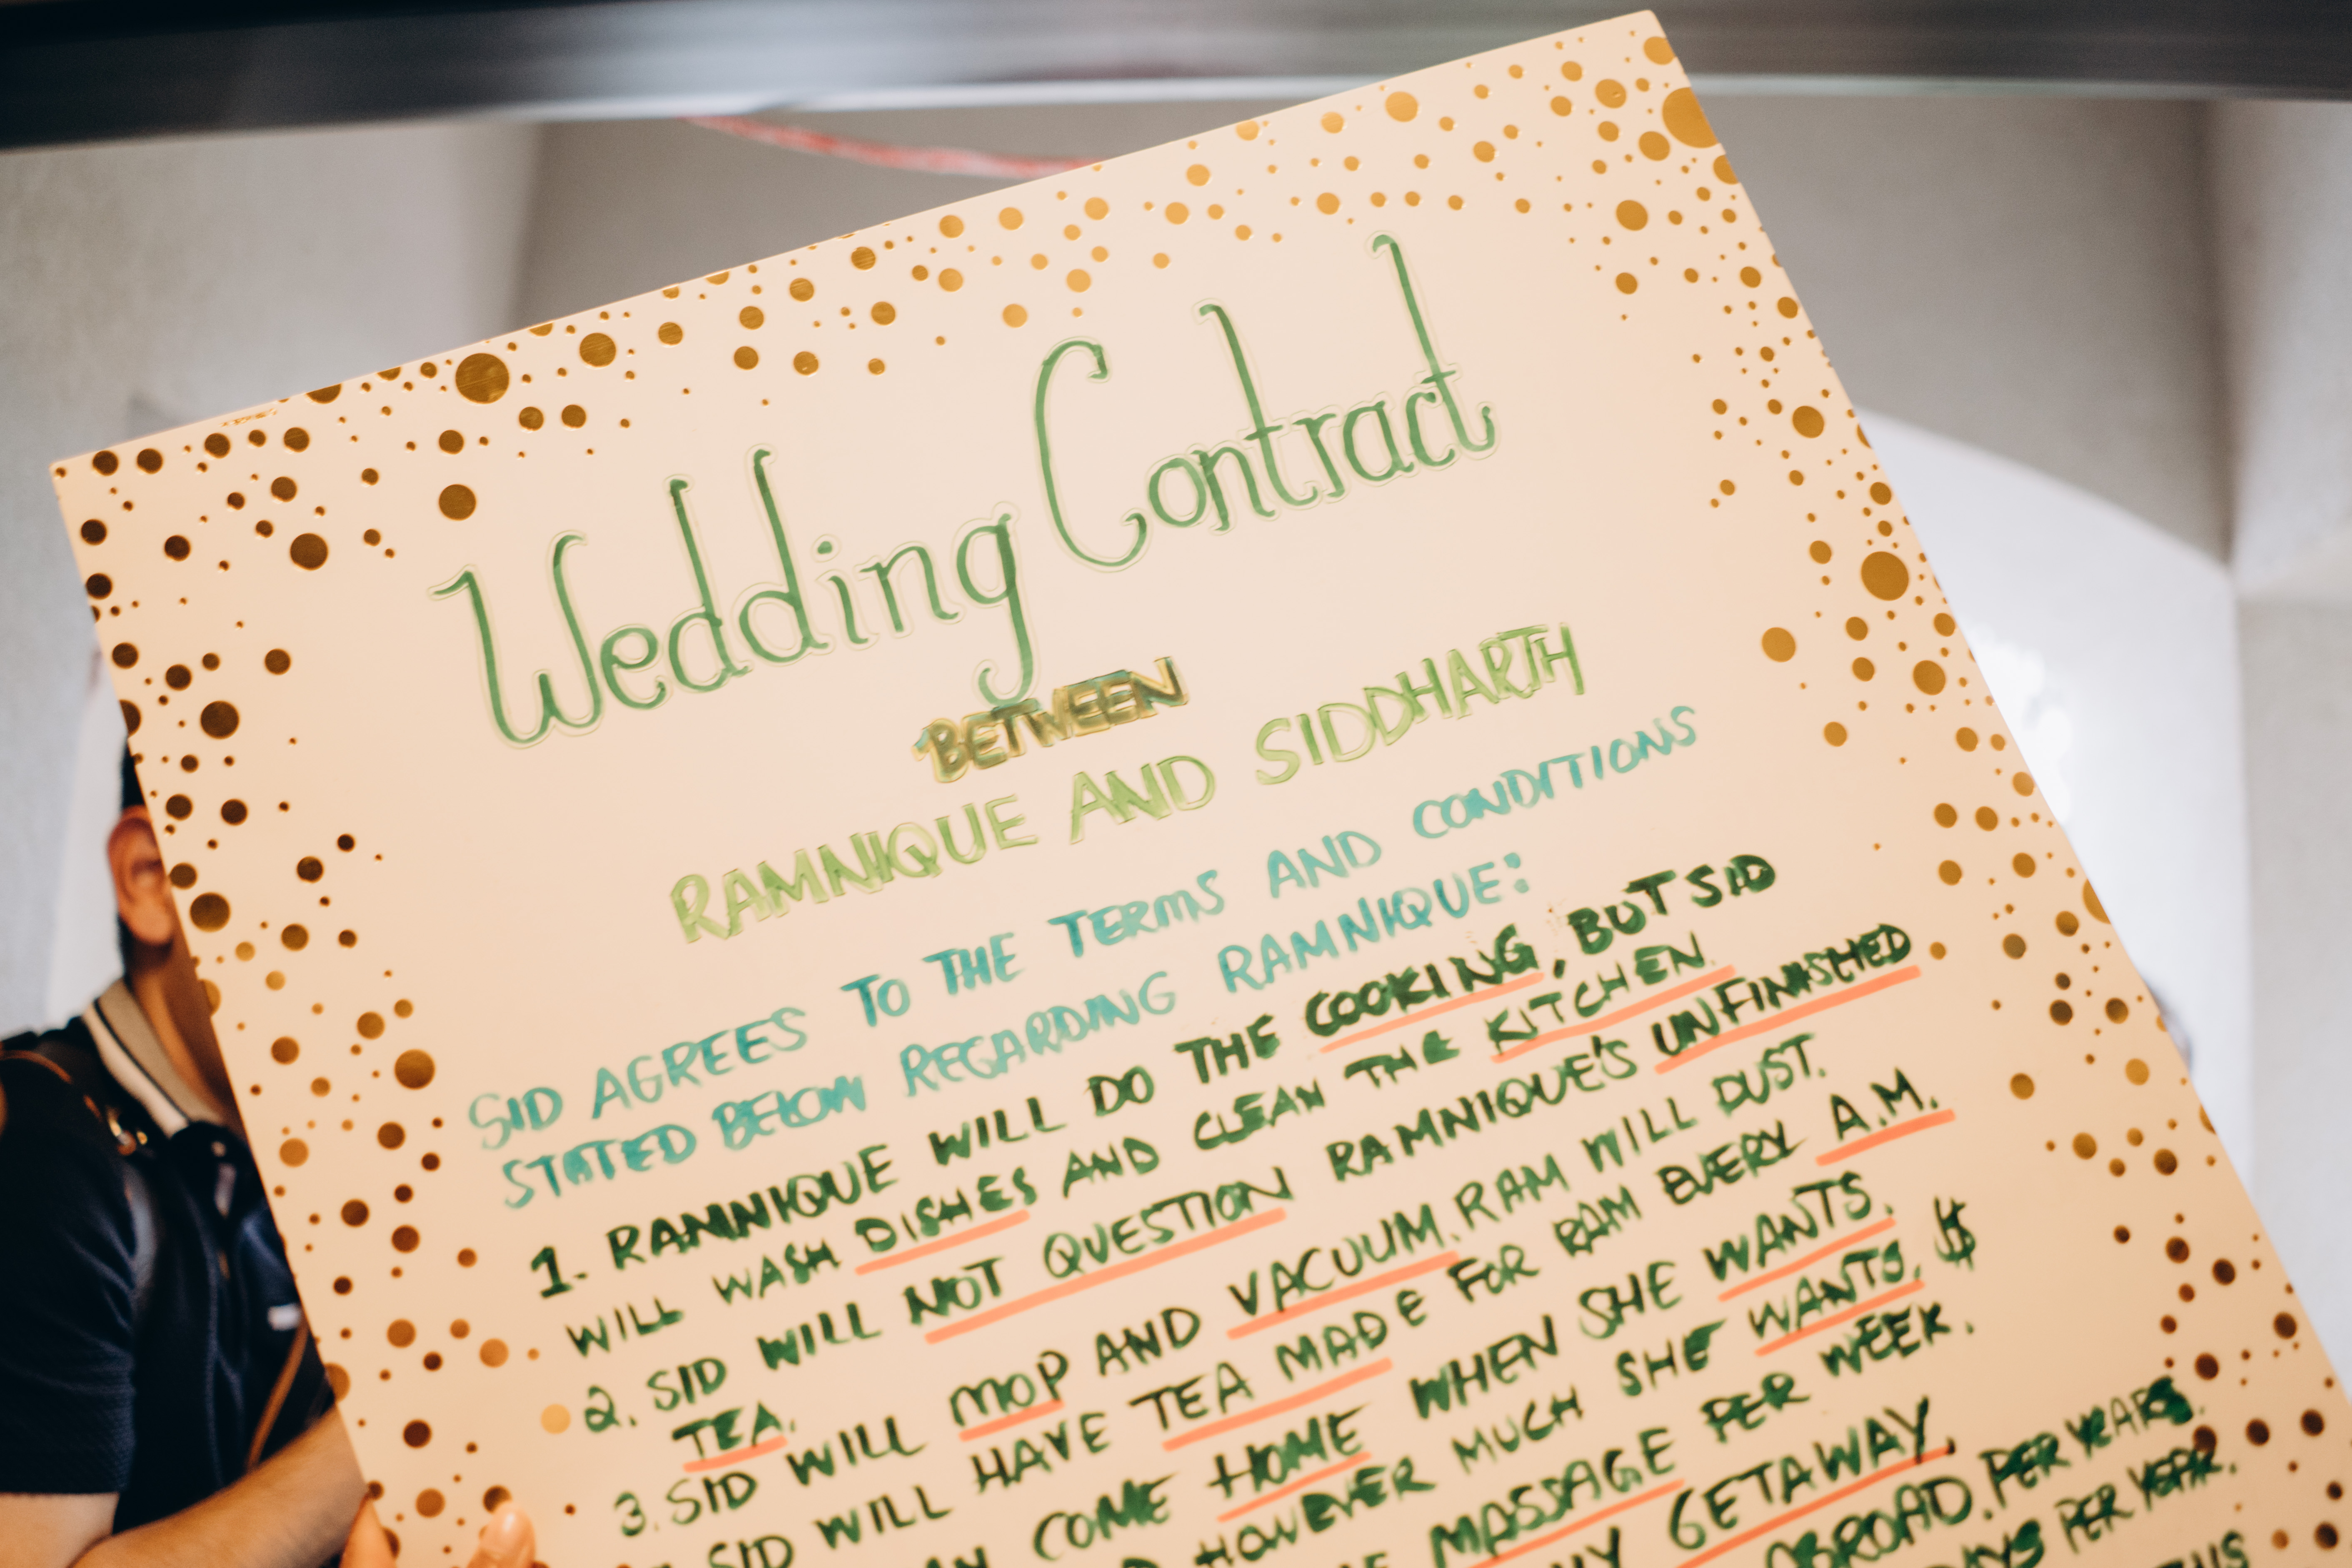 Wedding Contract
BETWEEN
RAMNIQUE AND SIDDHARTH
SID AGREES TO THE TERMS AND CONDITIONS
STATED BELOW REGARDING RAMNIQUE:
1. RAMNIQUE WILL DO THE COOKING, BUT SID
WILL WASH DISHES AND CLEAN THE KITCHEN.
2. SID WILL NOT QUESTION RAMNIQUE'S UNFINISHED
TEA.
3. SID WILL MOP AND VACUUM. RAM WILL DUST.
SID WILL HAVE TEA MADE FOR RAM EVERY A.M.
COME HOME WHEN SHE WANTS.
HOWEVER MUCH SHE WANTS. $
MASSAGE PER WEEK.
GETAWAY.
ABROAD. PER YEARS.
PER YEAR.